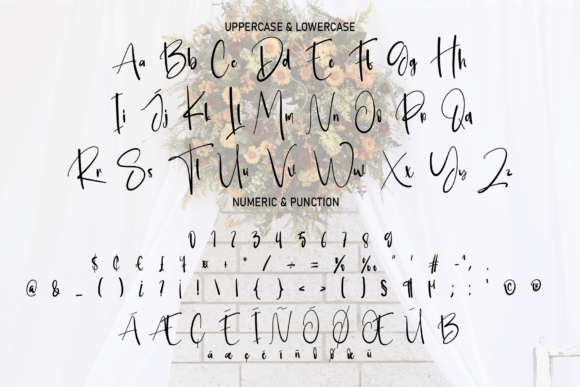 UPPERCASE & LOWERCASE
Aa Bb Cc Dd Ee Ff Gg Hh
Ii Jj Kk Ll Mm Nn Oo Pp Qq
Rr Ss Tt Uu Vv Ww Xx Yy Zz
NUMERIC & PUNCTION
0 1 2 3 4 5 6 7 8 9
$ ¢ € £ ¥ ¤ + * / ÷ = % ‰ " ' #
@ & _ ( ) ¿ ? ¡ ! \ | { } < > [ ] § ¶ µ ; : ' © ®
Á Æ Ç É Í Ñ Ó Ø Œ Ú ß
á æ ç é í ñ ó ø œ ú